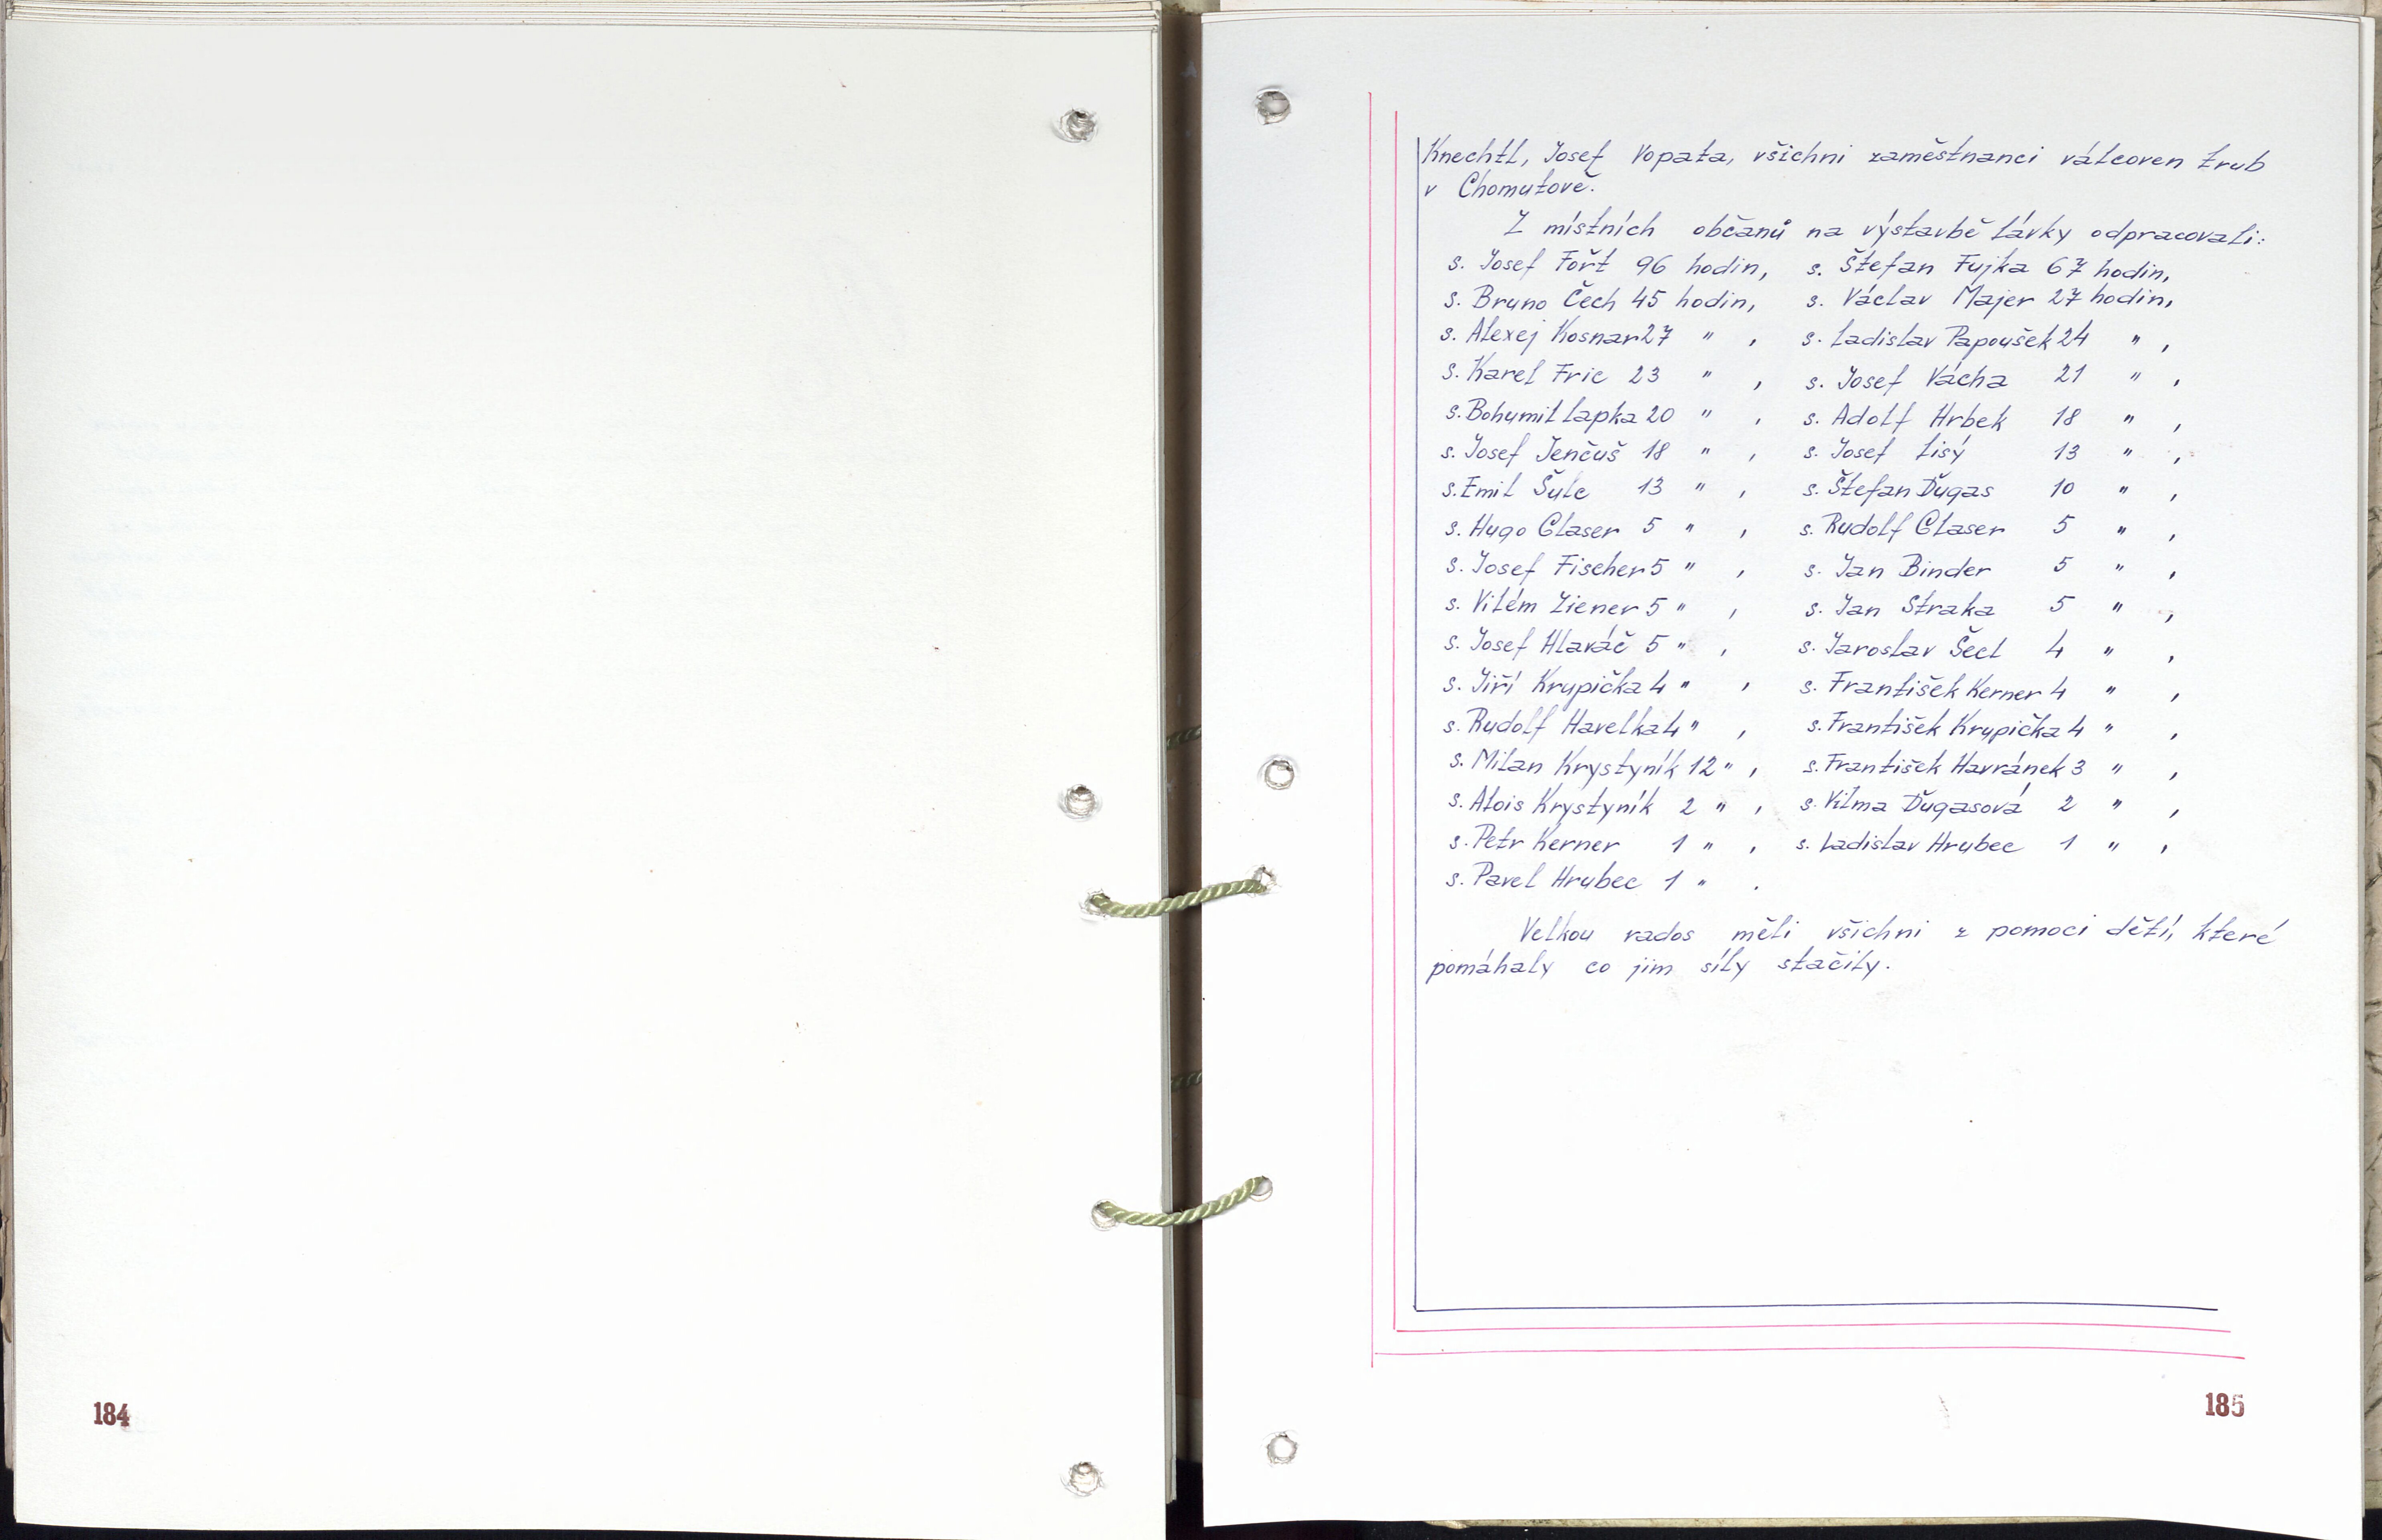 Knechtl, Josef Vopata, všichni zaměstnanci válcoven trub
v Chomutově.
Z místních občanů na výstavbě lávky odpracovali:
s. Josef Fořt 96 hodin, s. Štefan Fujka 67 hodin,
s. Bruno Čech 45 hodin, s. Václav Majer 27 hodin,
s. Alexej Kosnar 27 " , s. Ladislav Papoušek 24 " ,
s. Karel Fric 23 " , s. Josef Vácha 21 " ,
s. Bohumil Lapka 20 " , s. Adolf Hrbek 18 " ,
s. Josef Jenčuš 18 " , s. Josef Lisý 13 " ,
s. Emil Šulc 13 " , s. Štefan Ďugas 10 " ,
s. Hugo Glaser 5 " , s. Rudolf Glaser 5 " ,
s. Josef Fischer 5 " , s. Jan Binder 5 " ,
s. Vilém Ziener 5 " , s. Jan Straka 5 " ,
s. Josef Hlaváč 5 " , s. Jaroslav Šecl 4 " ,
s. Jiří Krupička 4 " , s. František Kerner 4 " ,
s. Rudolf Havelka 4 " , s. František Krupička 4 " ,
s. Milan Krystyník 12 " , s. František Havránek 3 " ,
s. Alois Krystyník 2 " , s. Vilma Ďugasová 2 " ,
s. Petr Kerner 1 " , s. Ladislav Hrubec 1 " ,
s. Pavel Hrubec 1 " .
Velkou rados měli všichni z pomoci dětí, které
pomáhaly co jim síly stačily.
184
185